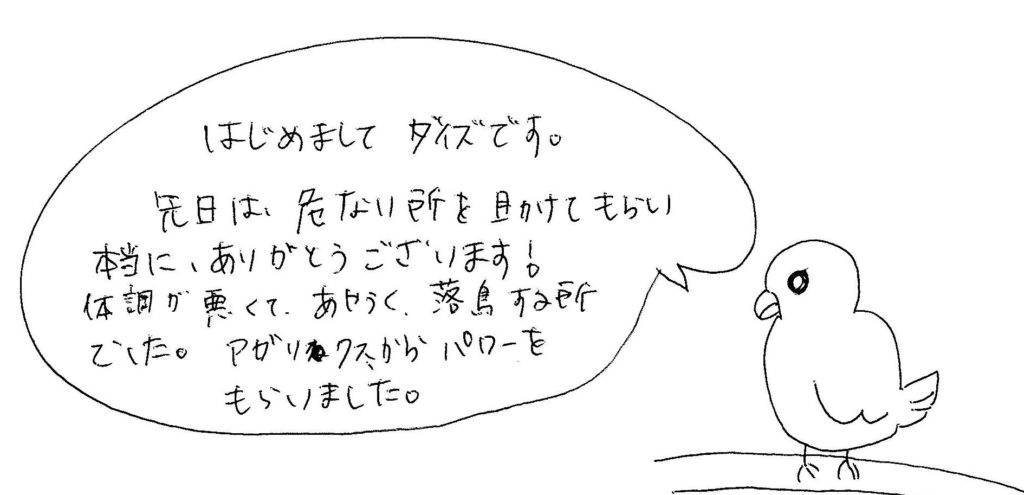 はじめまして ダイズです。
先日は、危ない所を助けてもらい
本当に、ありがとうございます!
体調が悪くて、あやうく、落鳥する所
でした。アガリクスからパワーを
もらいました。